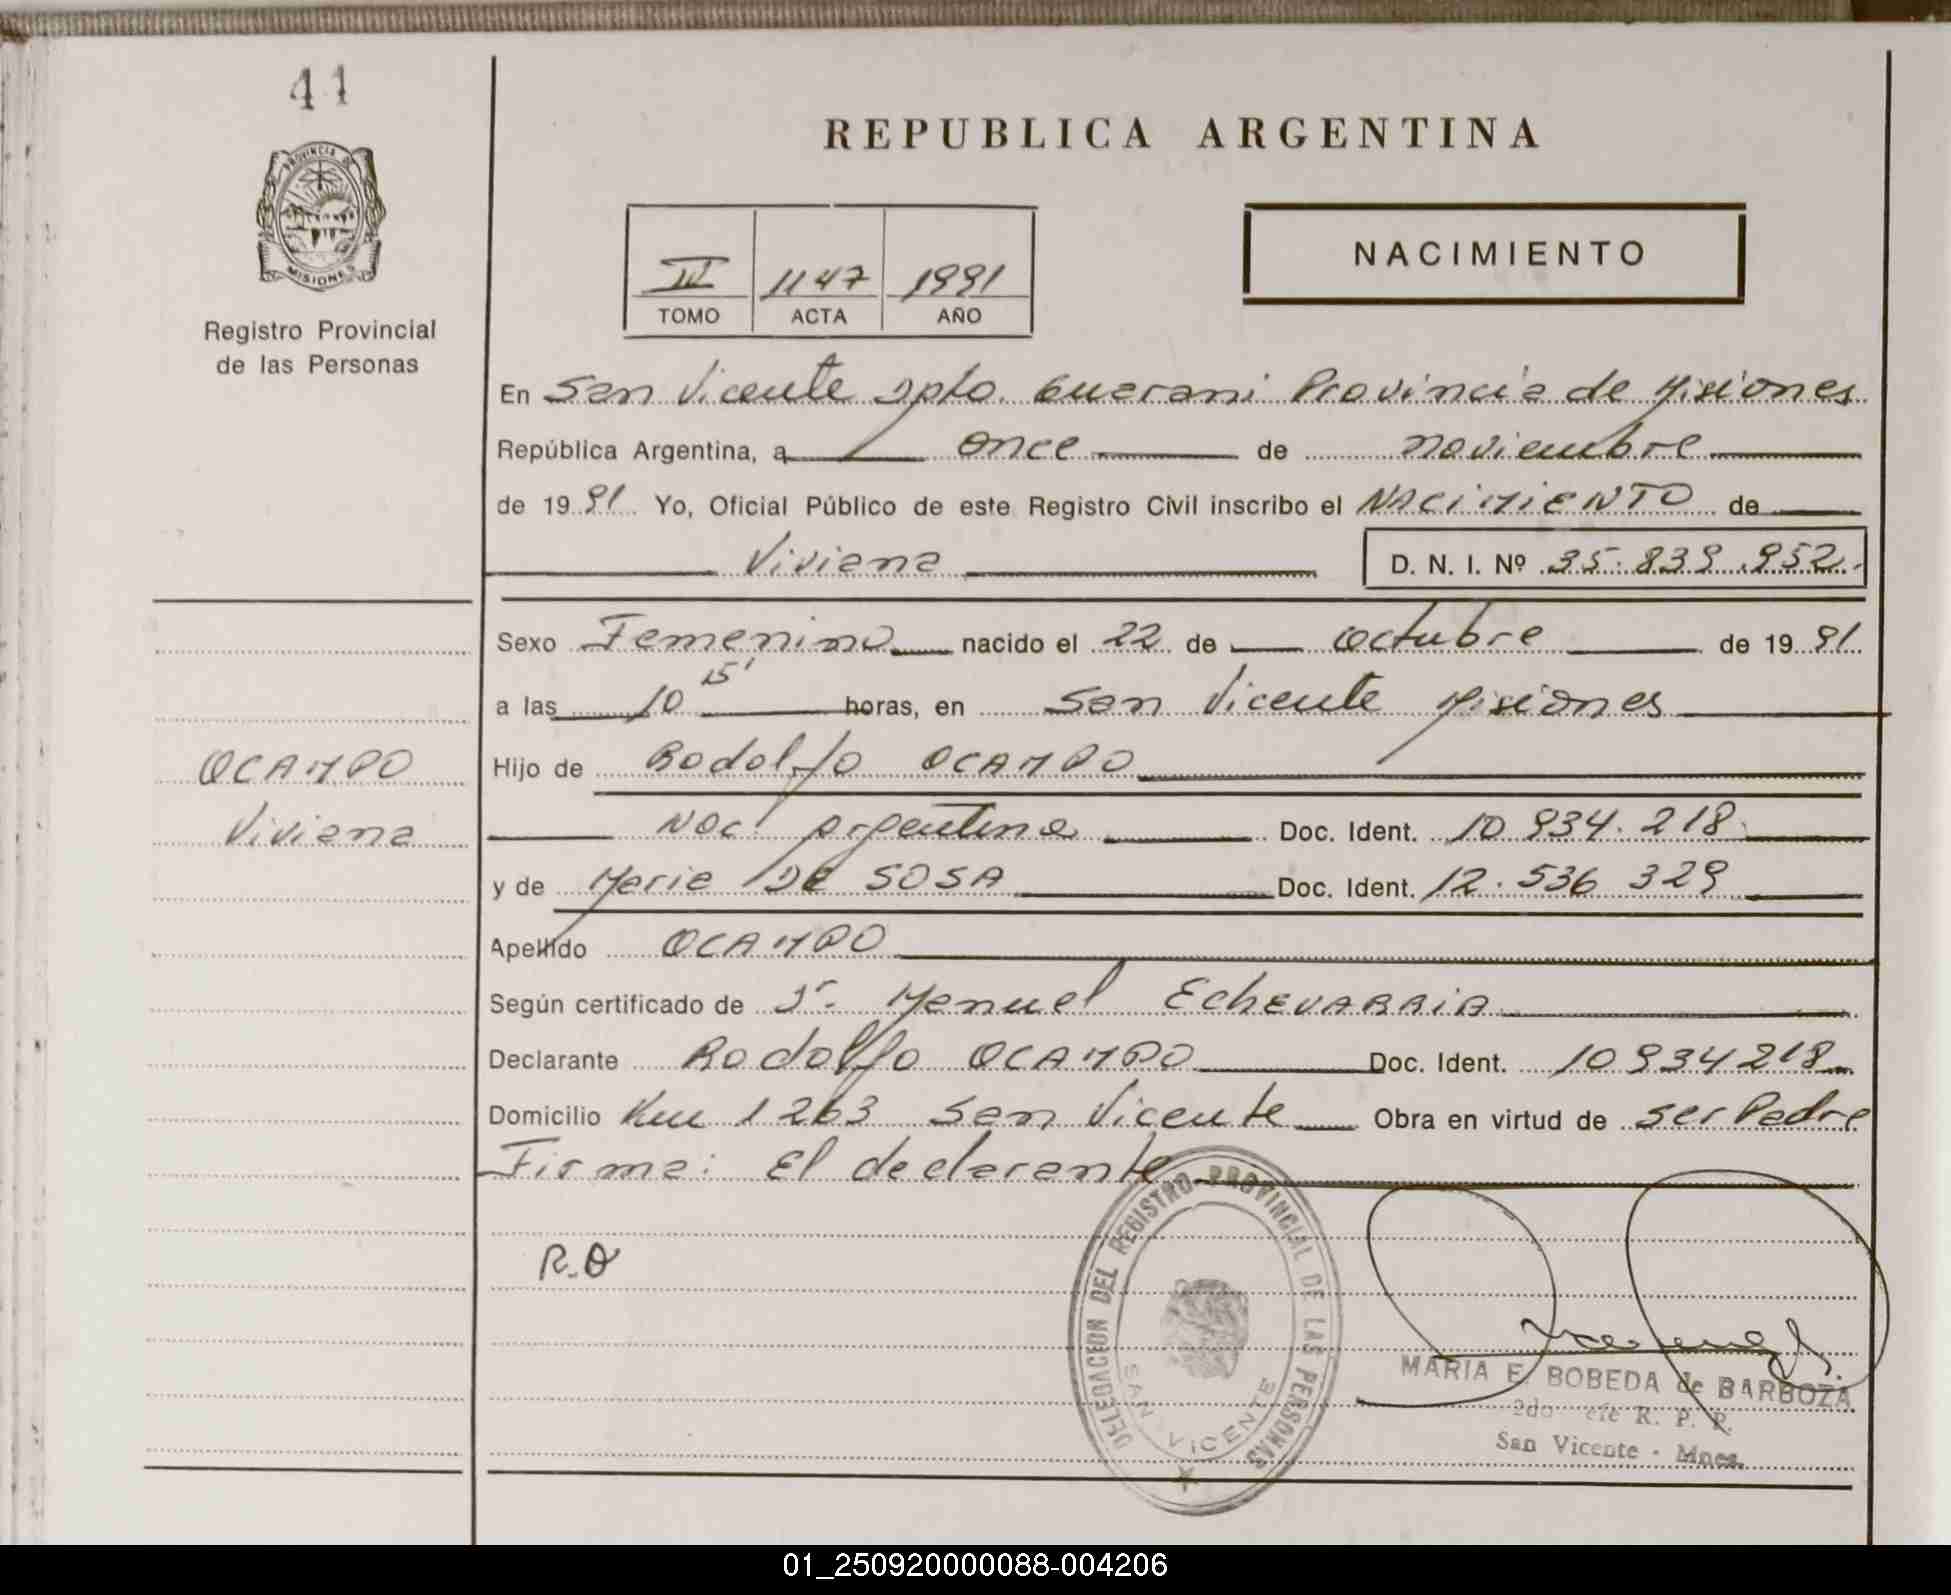 41
PROVINCIA DE
MISIONES
Registro Provincial
de las Personas
OCAMPO
Viviana
REPUBLICA ARGENTINA
NACIMIENTO
III 1147 1991
TOMO ACTA AÑO
En San Vicente Dpto. Guarani Provincia de Misiones
República Argentina, a once de noviembre
de 1991 Yo, Oficial Público de este Registro Civil inscribo el NACIMIENTO de
Viviana D. N. I. Nº 35.839.952.
Sexo Femenino nacido el 22 de octubre de 1991.
a las 10 15' horas, en San Vicente Misiones
Hijo de Rodolfo OCAMPO
Nac. Argentina Doc. Ident. 10.934.218
y de Maria DE SOSA Doc. Ident. 12.536 329
Apellido OCAMPO
Según certificado de Dr. Manuel EchEVARRIA
Declarante Rodolfo OCAMPO Doc. Ident. 10934218
Domicilio Km 1263 San Vicente Obra en virtud de ser Padre
Firma: El declarante
R.O
DELEGACION DEL REGISTRO PROVINCIAL DE LAS PERSONAS
SAN VICENTE
MARIA E. BOBEDA de BARBOZA
2do efe R. P. P.
San Vicente - Mnes.
01_250920000088-004206